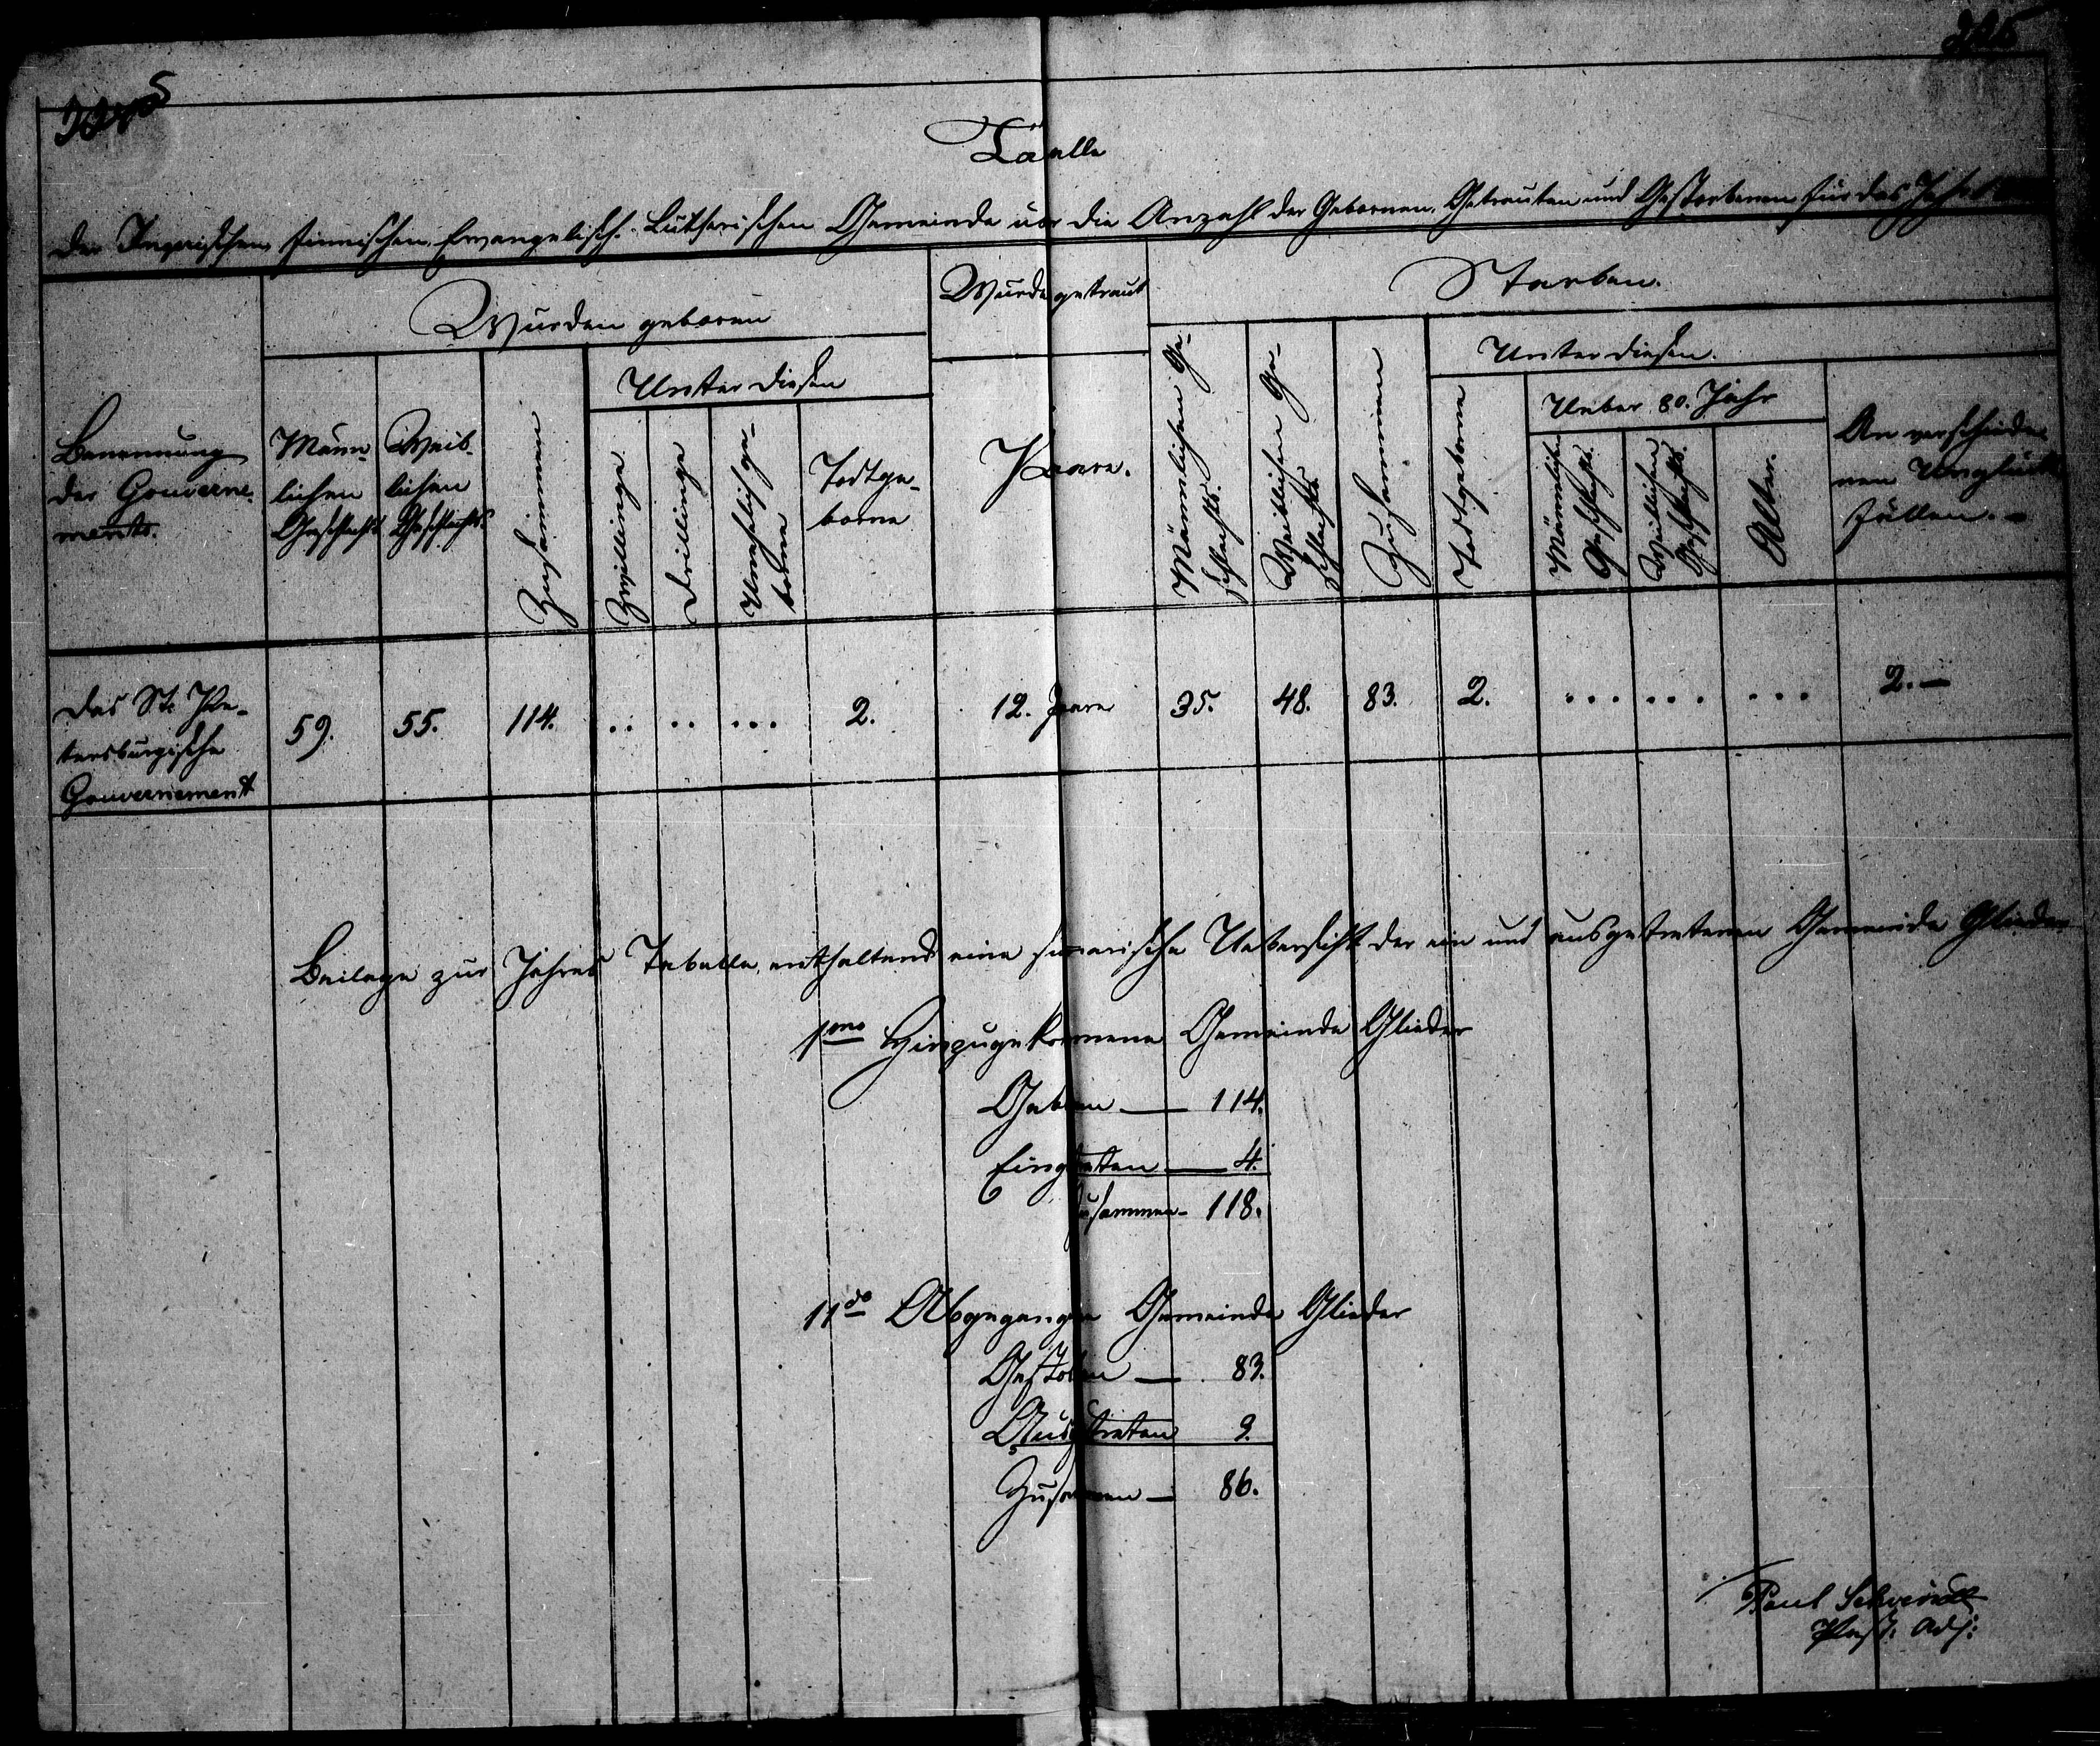 Tabelle
der Ingrischen finnischen Ewangelisch-Lutherischen Gemeinde über die Anzahl der Gebornen, Getrauten und Gestorbenen für das Jahr
Benennung
der Gouverne-
ments.
Wurden geboren
Männ-
lichen
Geschlechts
Weib-
lichen
Geschlechts
Zusammen
Unter diesen
Zwillinge
Drillinge
Unehelich ge-
borne
Todtge-
borne
Wurden getraut
Paare.
Starben.
Männlichen Ge-
schlechts.
Weiblichen Ge-
schlechts.
Zusammen
Unter diesen.
Todtgeborne
Ueber 80. Jahr
Männlichen
Geschlechts.
Weiblichen
Geschlechts.
Alter.
An verschiede-
nen Unglücks
Fällen. -
Das St. Pe-
tersburgische
Gouvernement
59. 55. 114. .. .. ... 2. 12. Paare 35. 48. 83. 2. ... ... ... 2. —
Beilage zur Jahres Tabelle, enthaltend eine sumarische Uebersicht der ein und ausgetretenen Gemeinde Glieder
1mo Hinzugekommene Gemeinde Glieder
Geboren — 114.
Eingetreten — 4.
Zusammen - 118.
11do Abgegangene Gemeinde Glieder
Gestorben — 83.
Ausgetreten 3.
Zusammen — 86.
Paul Schwindt
Past: Adj: